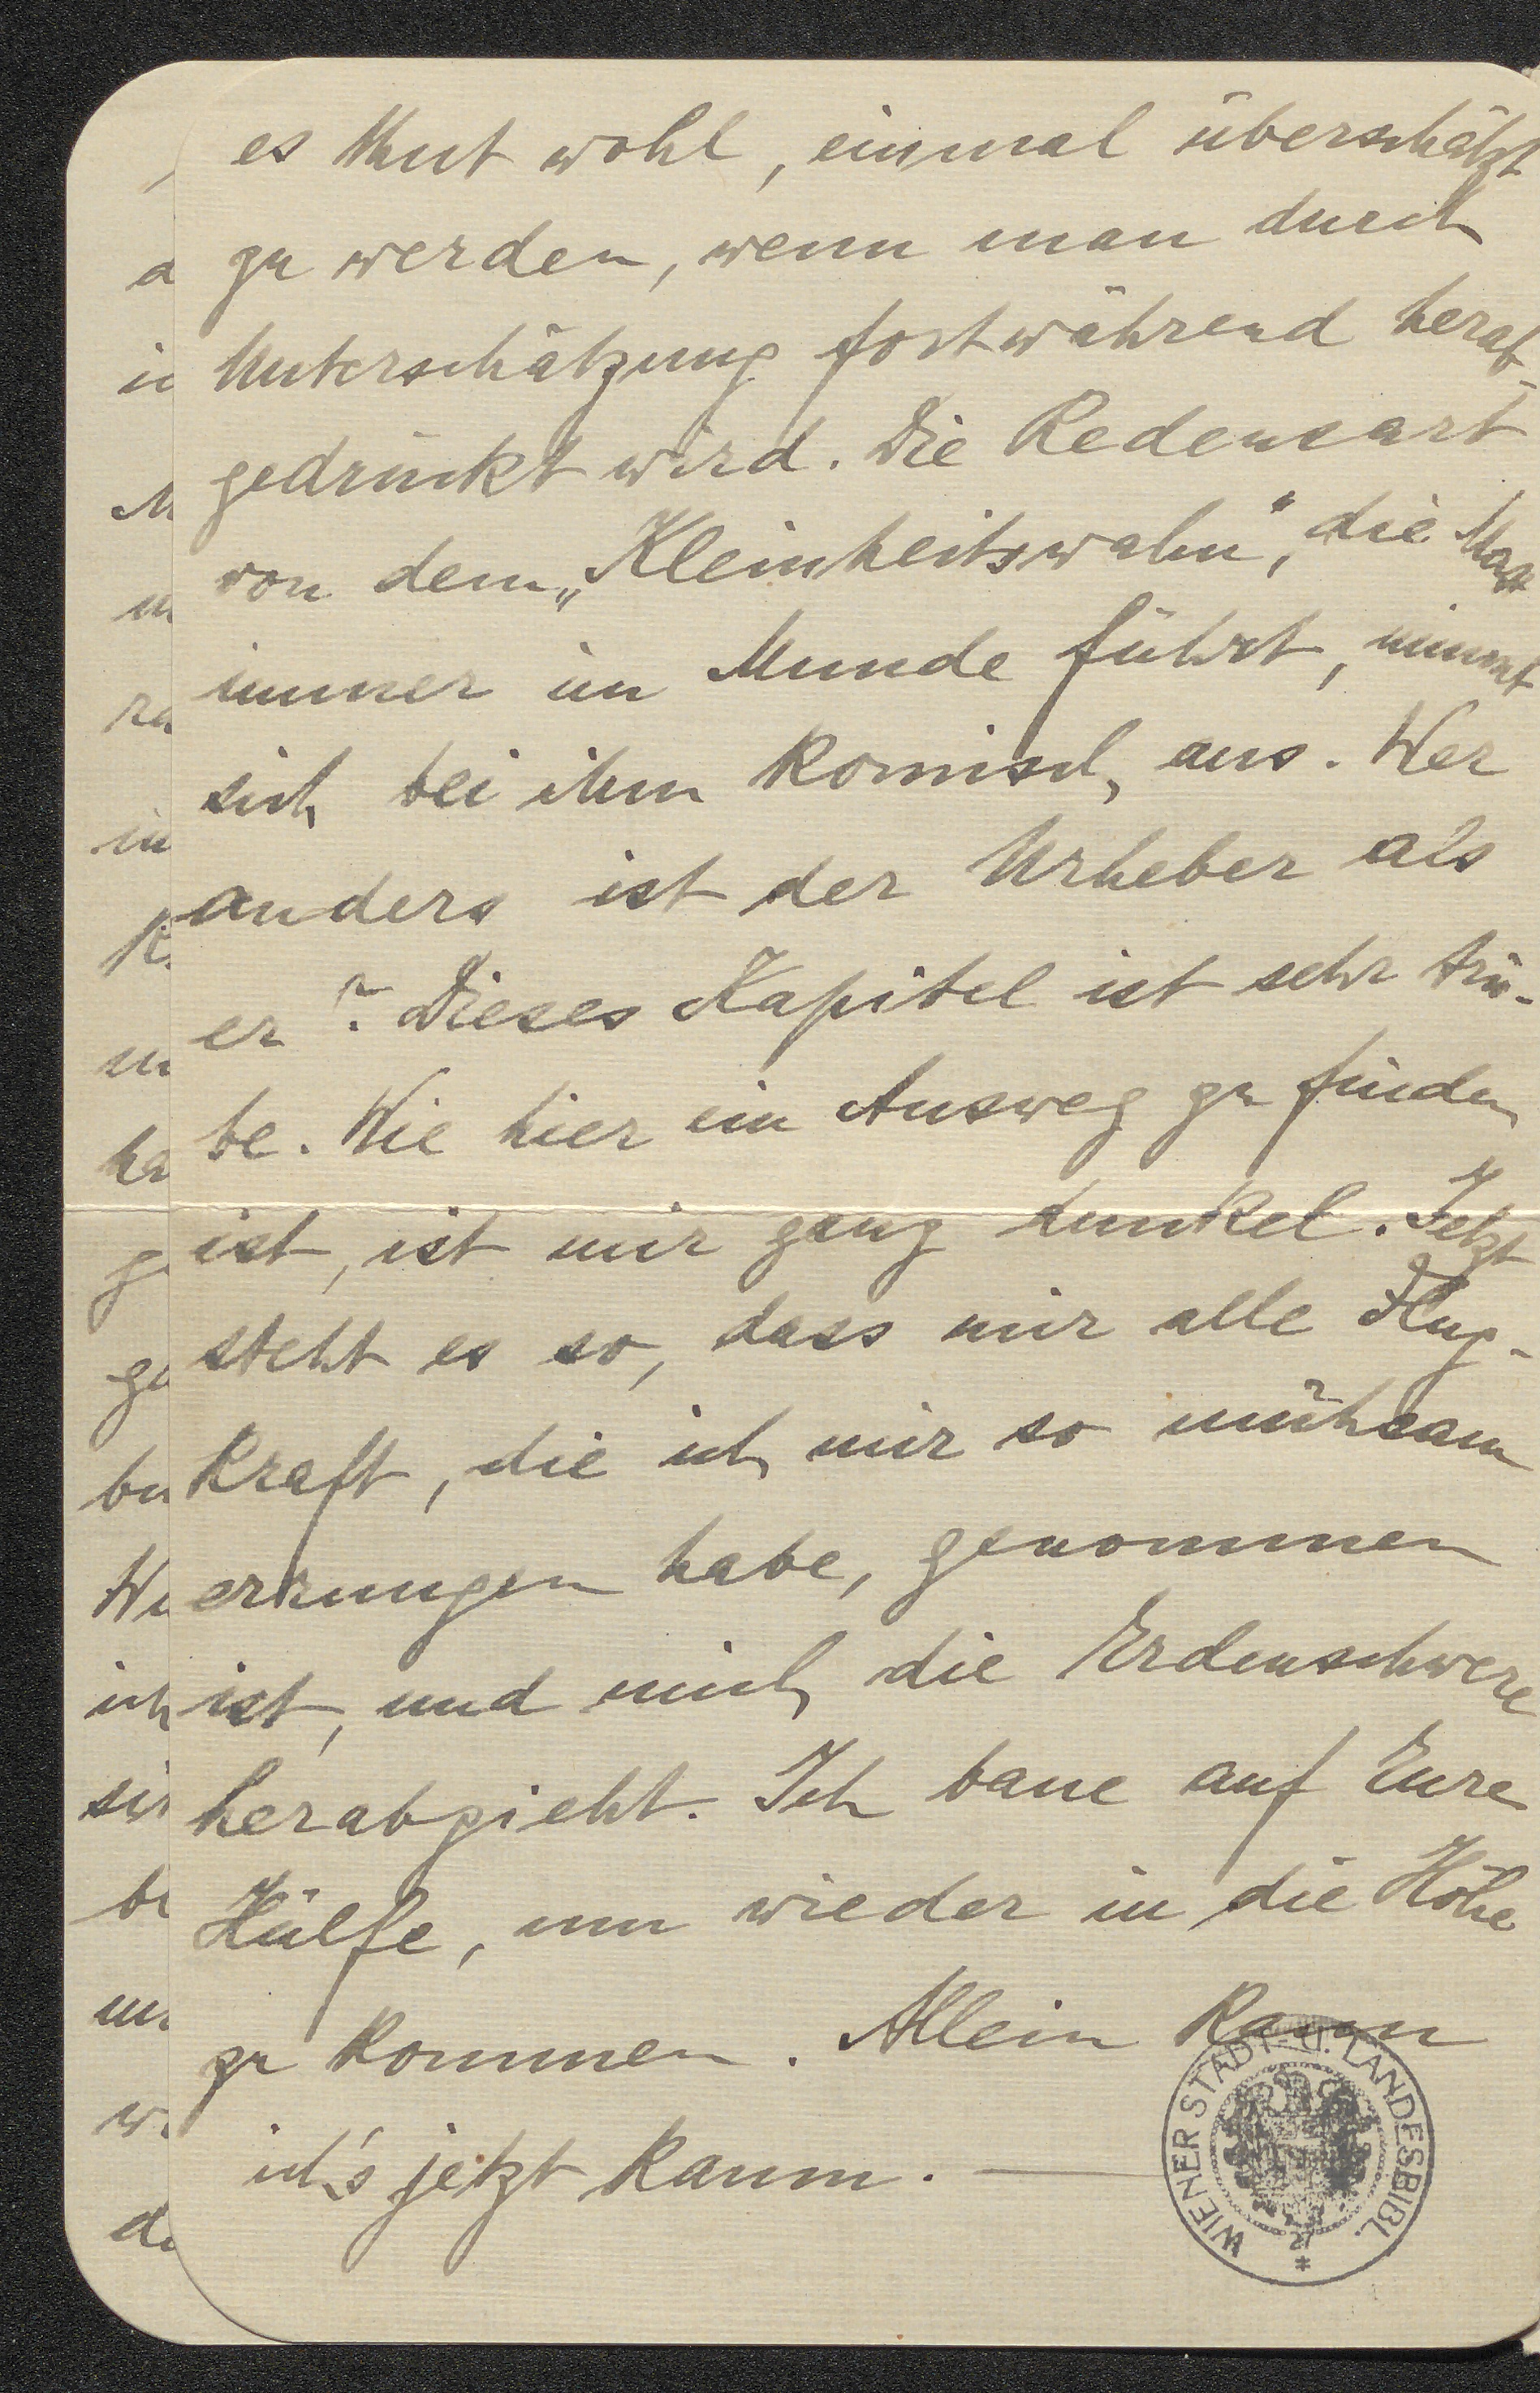 es thut wohl, einmal überschätzt
zu werden, wenn man durch
Unterschätzung fortwährend herab-
gedrückt wird. Die Redensart
von dem „Kleinheitswahn“, die Max
immer im Munde führt, nimmt
sich bei ihm komisch aus. Wer
anders ist der Urheber als
er? Dieses Kapitel ist sehr trü-
be. Wie hier ein Ausweg zu finden
ist, ist mir ganz dunkel. Jetzt
steht es so, dass mir alle Flug-
kraft, die ich mir so mühsam
errungen habe, genommen
ist, und mich die Erdenschwere
herabzieht. Ich baue auf Eure
Hülfe, um wieder in die Höhe
zu kommen. Allein kann
ich's jetzt kaum. —
WIENER STADT- U. LANDESBIBL.